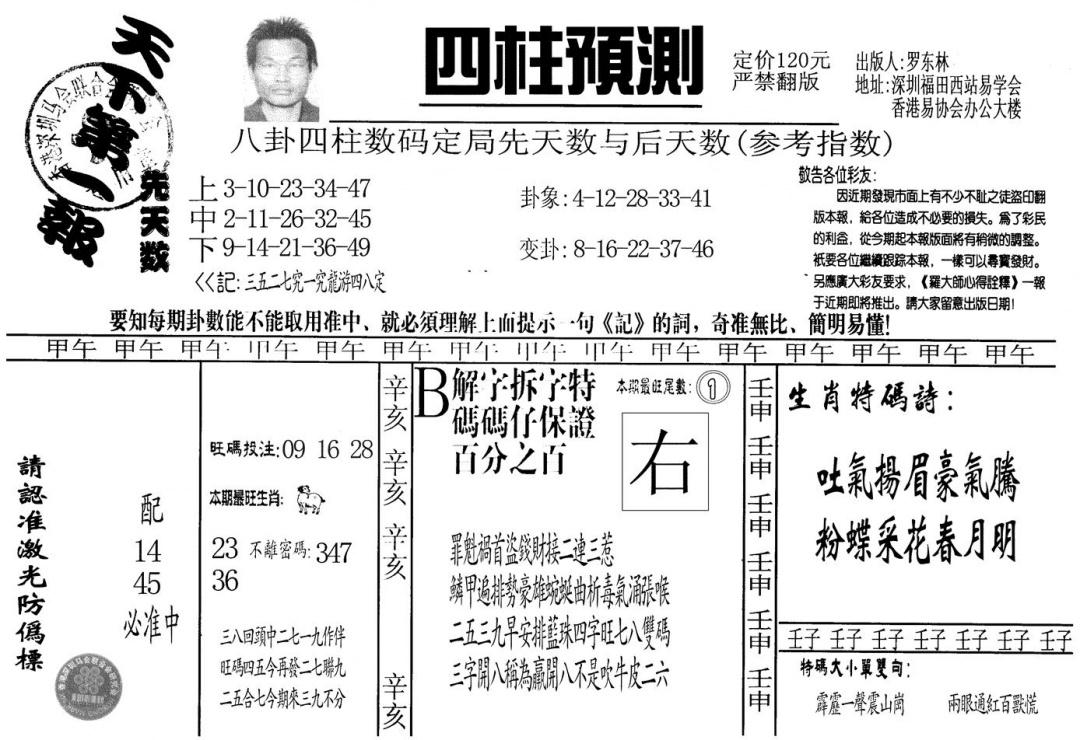 天下第一報
四柱預測
定价120元
严禁翻版
出版人:罗东林
地址:深圳福田西站易学会
香港易协会办公大楼
八卦四柱数码定局先天数与后天数(参考指数)
先天数
上 3-10-23-34-47
中 2-11-26-32-45
下 9-14-21-36-49
卦象:4-12-28-33-41
变卦:8-16-22-37-46
<<記:三五二七究一究龍游四八定
敬告各位彩友:
因近期發現市面上有不少不耻之徒盜印翻
版本報,給各位造成不必要的損失。為了彩民
的利益,從今期起本報版面將有稍微的調整。
衹要各位繼續跟踪本報,一樣可以尋寶發財。
另應廣大彩友要求,《羅大師心得詮釋》一報
于近期即將推出。請大家留意出版日期!
要知每期卦數能不能取用准中、就必須理解上面提示一句《記》的詞,奇准無比、簡明易懂!
甲午 甲午 甲午 甲午 甲午 甲午 甲午 甲午 甲午 甲午 甲午 甲午 甲午 甲午 甲午
請認准激光防僞標
配
14
45
必准中
旺碼投注:09 16 28
本期最旺生肖:
23 不離密碼:347
36
三八回頭中二七一九作伴
旺碼四五今再發二七聯九
二五合七今期來三九不分
辛亥
辛亥
辛亥
辛亥
B 解字拆字特
碼碼仔保證
百分之百
本期最旺尾數:1
右
罪魁禍首盜錢財接二連三惹
鱗甲遍排勢豪雄蜿蜒曲折毒氣涌張喉
二五三九早安排藍珠四字旺七八雙碼
三字開八稱為贏開八不是吹牛皮二六
壬申
壬申
壬申
壬申
壬申
壬申
生肖特碼詩:
吐氣揚眉豪氣騰
粉蝶采花春月明
壬子 壬子 壬子 壬子 壬子 壬子 壬子
特碼大小單雙句:
霹靂一聲震山崗 兩眼通紅百獸慌